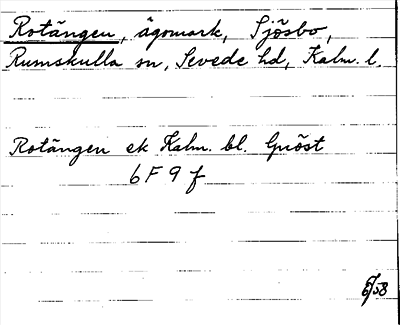 Rotängen, ägomark, Sjösbo,
Rumskulla sn, Sevede hd, Kalm. l.
Rotängen ek Kalm. bl. Gnöst
6 F 9 f
6/58